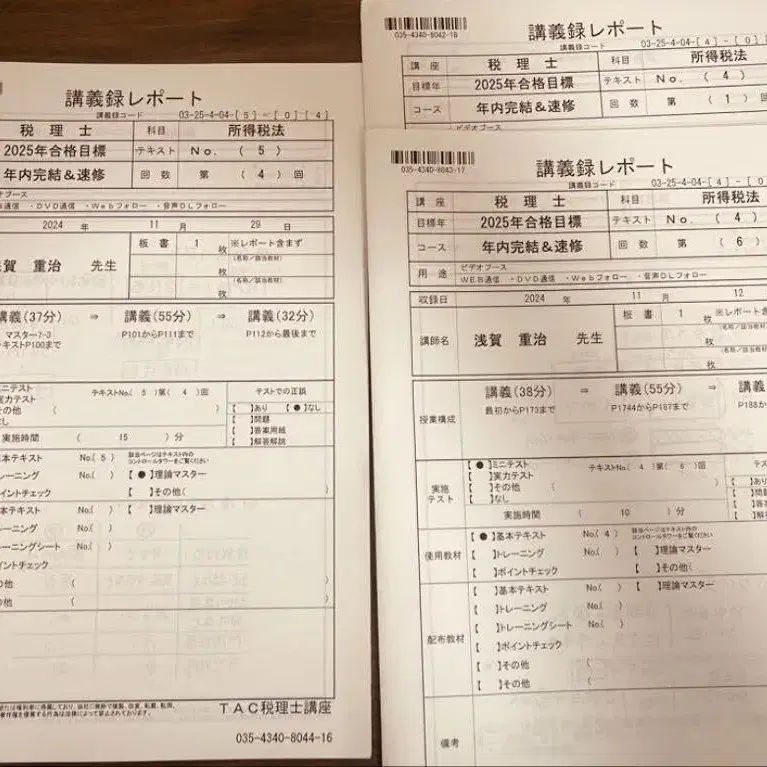 講義録レポート
講義録コード 03-25-4-04-[5]-[0][4]
税理士 科目 所得税法
2025年合格目標 テキスト No. (5)
年内完結&速修 回数 第 (4) 回
通信 ・DVD通信 ・Webフォロー ・音声DLフォロー
2024 年 11 月 29 日
賀 重治 先生 板書 1 枚 ※レポート含まず
(名称/該当教材)
枚
(名称/該当教材)
枚
講義(37分) ⇒ 講義(55分) ⇒ 講義(32分)
マスター7-3 P101からP111まで P112から最後まで
テキストP100まで
ミニテスト テキストNo.( 5 )第( 4 )回 テストでの正誤
実力テスト 【 】あり 【●】なし
その他 ( ) 【 】問題
なし 【 】答案用紙
実施時間 ( 15 )分 【 】解答解説
基本テキスト No.( 5 ) 該当ページはテキスト内のコントロールタワーをご覧ください
トレーニング No.( ) 【●】理論マスター
ポイントチェック 【 】その他(
基本テキスト No.( ) 【 】理論マスター
トレーニング No.( )
トレーニングシート No.( )
ポイントチェック
その他 ( )
その他 ( )
TAC税理士講座
035-4340-8044-16
035-4340-8042-18
講義録レポート
講義録コード 03-25-4-04-[4]-[0]
講座 税理士 科目 所得税法
目標年 2025年合格目標 テキスト No. (4)
コース 年内完結&速修 回数 第 (1) 回
ビデオブース
035-4340-8043-17
講義録レポート
講義録コード 03-25-4-04-[4]-[0]
講座 税理士 科目 所得税法
目標年 2025年合格目標 テキスト No. (4)
コース 年内完結&速修 回数 第 (6) 回
用途 ビデオブース
WEB通信 ・DVD通信 ・Webフォロー ・音声DLフォロー
収録日 2024 年 11 月 12
講師名 浅賀 重治 先生 板書 1 枚 ※レポート含
(名称/該当教材)
枚
(名称/該当教材)
枚
授業構成 講義(38分) ⇒ 講義(55分) ⇒ 講義
最初からP173まで P1744からP187まで P188から
実施テスト 【●】ミニテスト テキストNo.( 4 )第( 6 )回
【 】実力テスト 【 】あり
【 】その他 ( ) 【 】問
【 】なし 【 】答
実施時間 ( 10 )分 【 】解
使用教材 【●】基本テキスト No.( 4 ) 該当ページはテキスト内のコントロールタワーをご覧ください
【 】トレーニング No.( ) 【 】理論マスター
【 】ポイントチェック 【 】その他(
配布教材 【 】基本テキスト No.( ) 【 】理論マスター
【 】トレーニング No.( )
【 】トレーニングシート No.( )
【 】ポイントチェック
【 】その他 (
【 】その他 (
備考